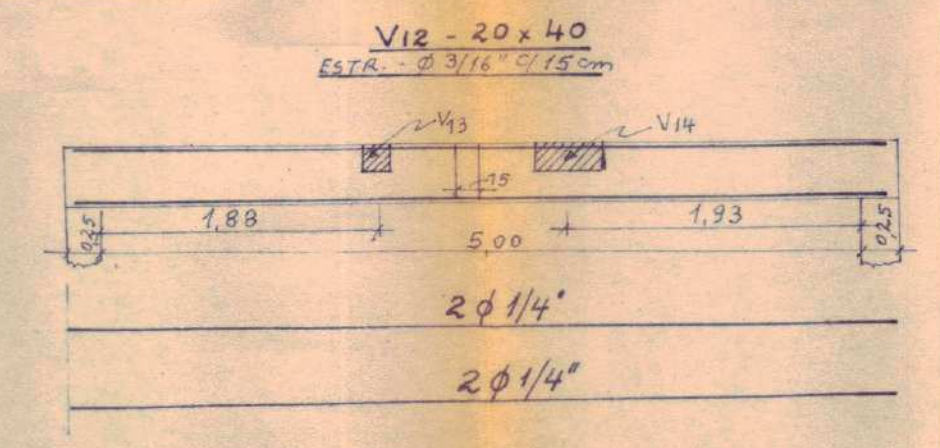 V12 - 20 x 40
ESTR. - Ø 3/16" C/ 15 cm
V13
V14
15
1,88
1,93
0,25
5,00
0,25
2 Ø 1/4"
2 Ø 1/4"